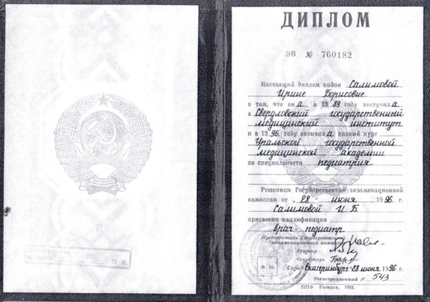 ДИПЛОМ
ЭВ № 760182
Настоящий диплом выдан Салимовой
Ирине Борисовне
в том, что она в 1989 году поступила
в Свердловский государственный
медицинский институт
и в 1996 году окончила полный курс
Уральской государственной
медицинской академии
по специальности педиатрия
Решением Государственной экзаменационной
комиссии от «28» июня 1996 г.
Салимовой И.Б.
присвоена квалификация
врач-педиатр
Председатель Государственной
экзаменационной комиссии
Город Екатеринбург 28 июня 1996 г.
Регистрационный № 543